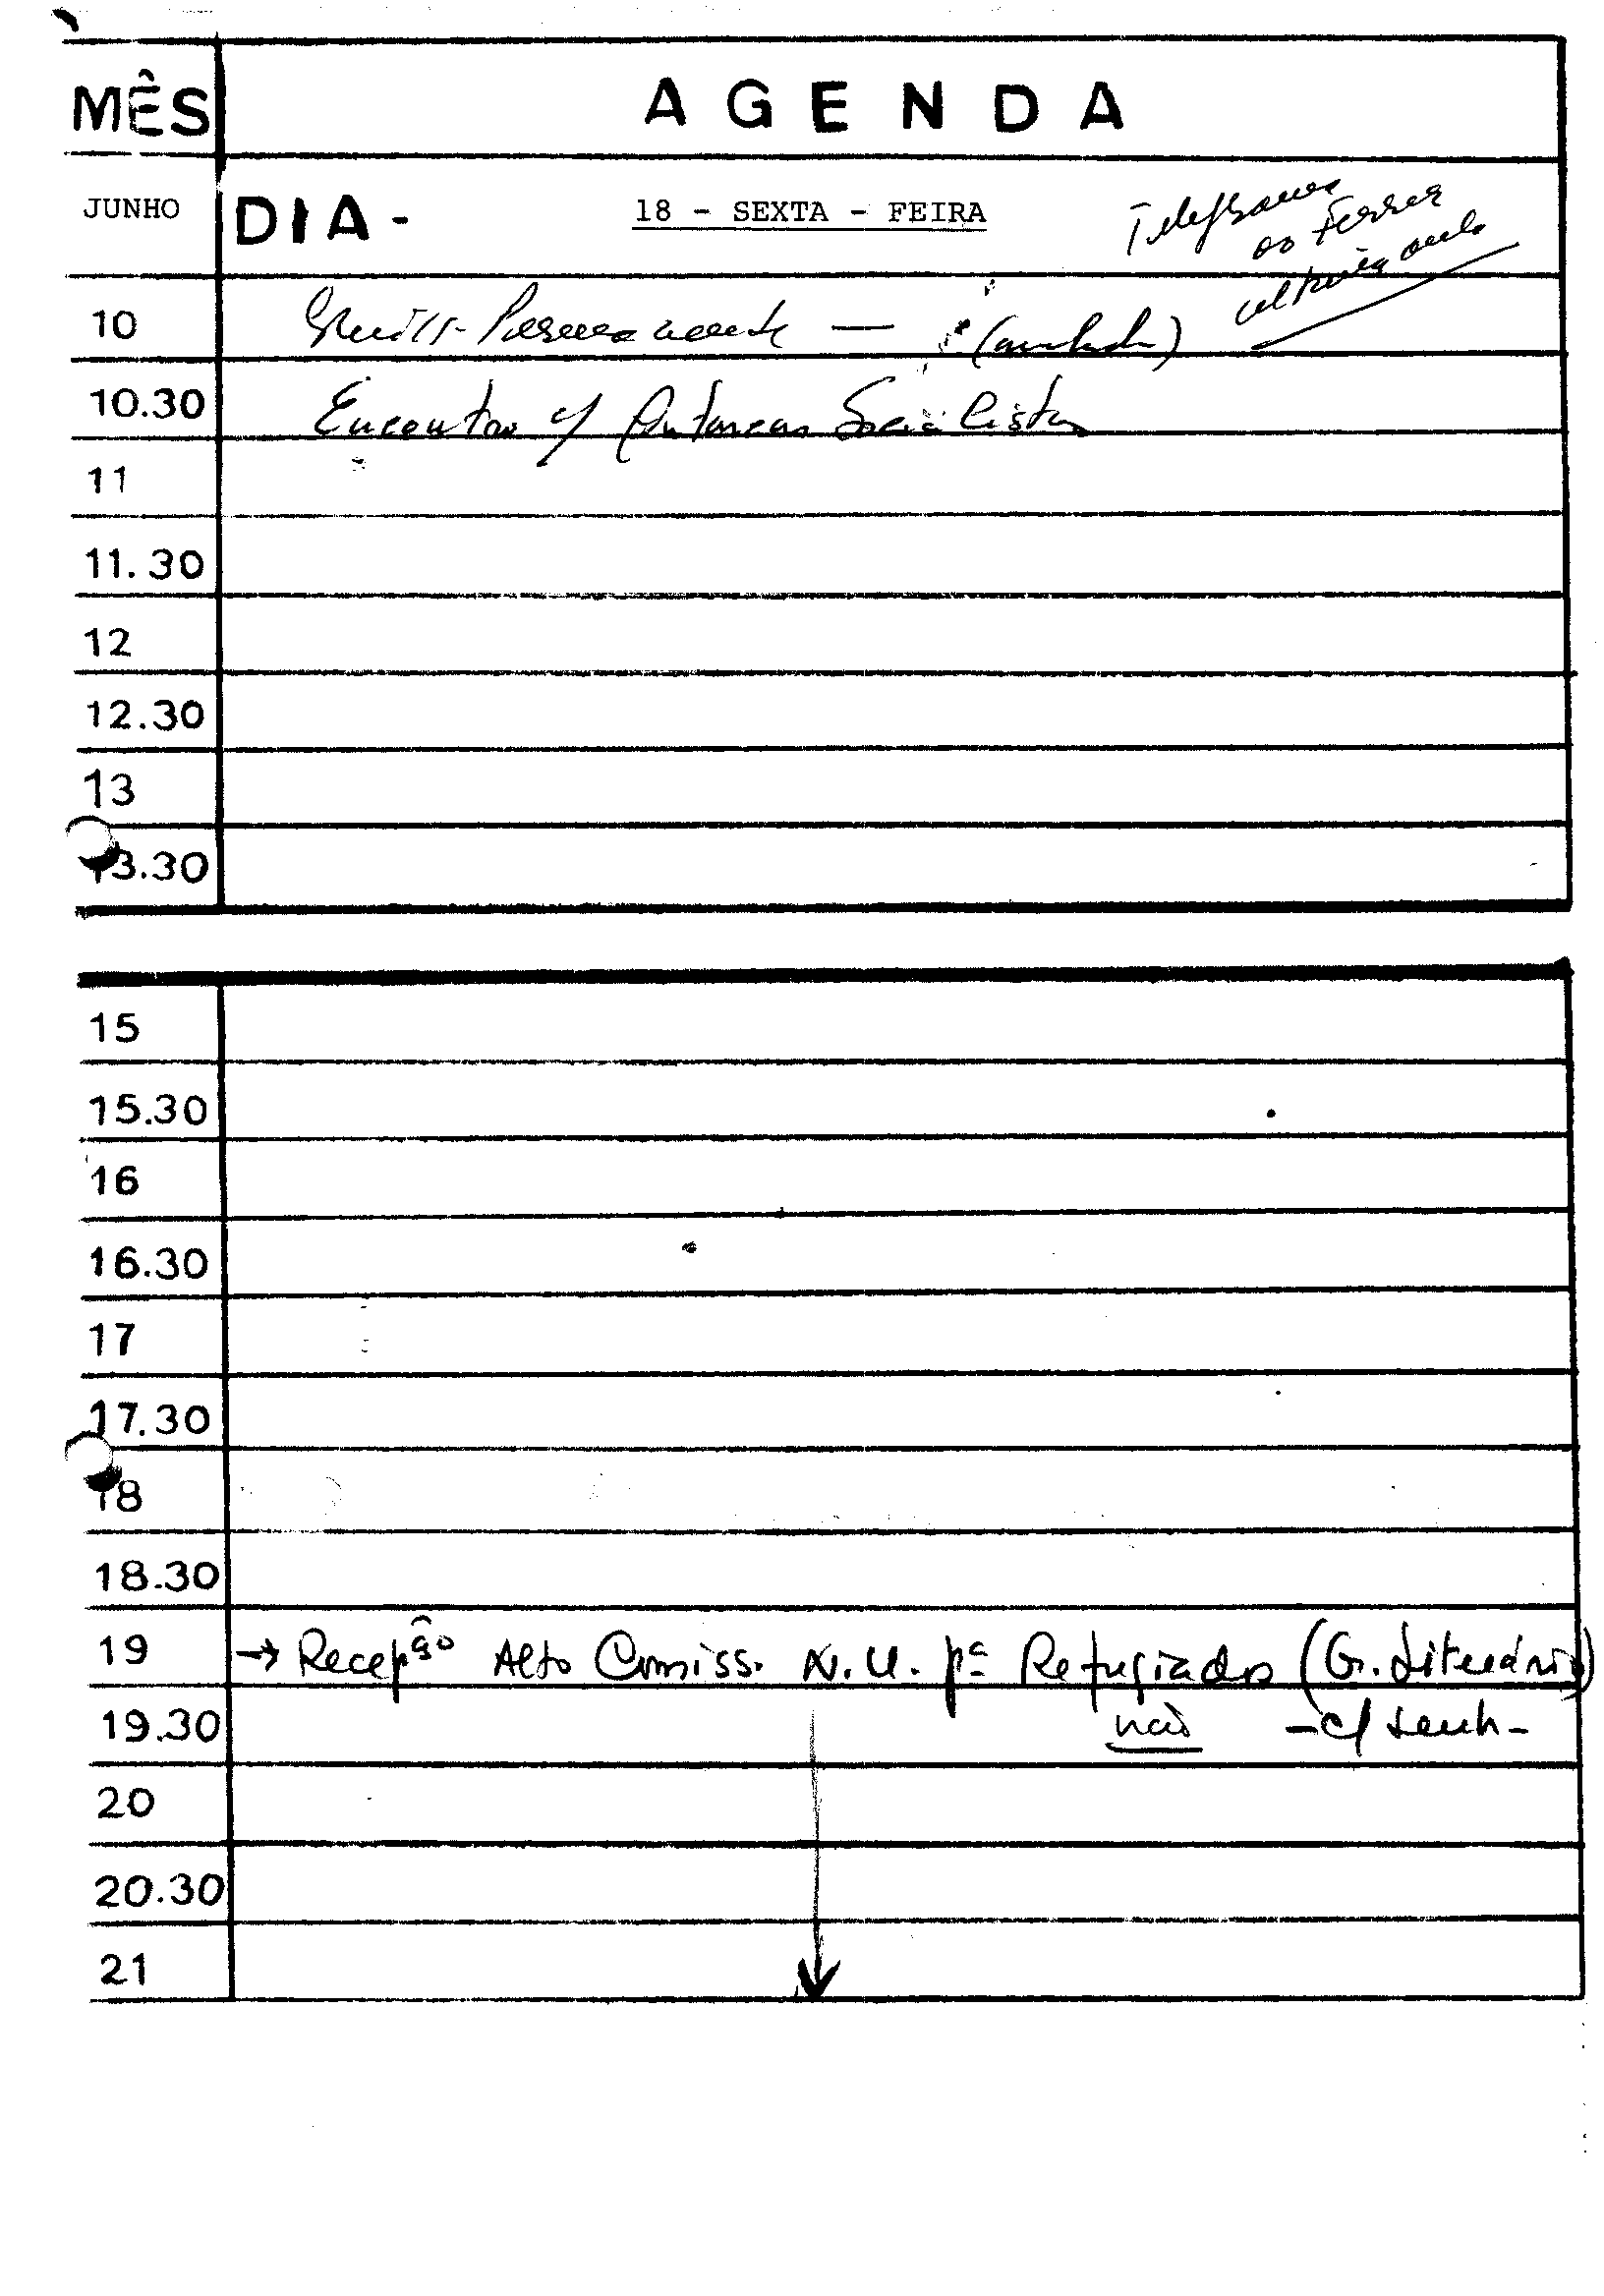 MÊS
A G E N D A
JUNHO
DIA -
18 - SEXTA - FEIRA
Telefonar
ao Ferrer
10
Permanente — (anulado)
10.30
Encontro c/ Autarcas Socialistas
11
11.30
12
12.30
13
13.30
15
15.30
16
16.30
17
17.30
18
18.30
19
→ Recepção Alto Comiss. N.U. pª Refugiados (Gr. Literário)
19.30
não - c/ senh -
20
20.30
21